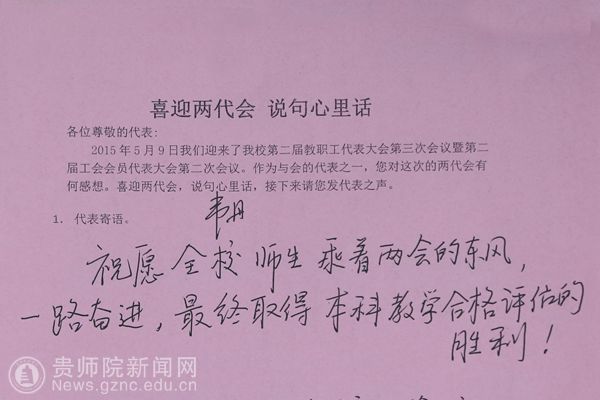 喜迎两代会 说句心里话
各位尊敬的代表:
2015年5月9日我们迎来了我校第二届教职工代表大会第三次会议暨第二
届工会会员代表大会第二次会议。作为与会的代表之一，您对这次的两代会有
何感想。喜迎两代会，说句心里话，接下来请您发代表之声。
韦丹
1. 代表寄语。
祝愿全校师生乘着两会的东风，
一路奋进，最终取得本科教学合格评估的
胜利！
贵师院新闻网
News.gznc.edu.cn